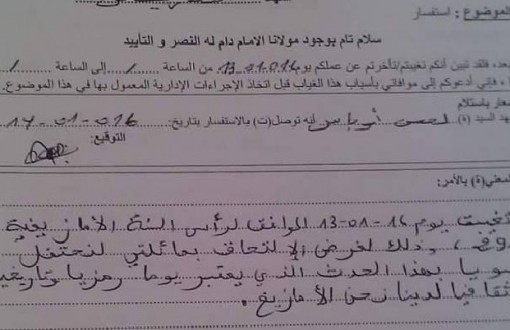 الموضوع : استفسار
سلام تام بوجود مولانا الامام دام له النصر و التأييد
بعد، فقد تبين أنكم تغيبتم/تأخرتم عن عملكم يوم 13.01.016 من الساعة / إلى الساعة /
فإني أدعوكم إلى موافاتي بأسباب هذا الغياب قبل اتخاذ الإجراءات الإدارية المعمول بها في هذا الموضوع.
إشعار باستلام
يشهد السيد (ة) لحسن أنه توصل(ت) بالاستفسار بتاريخ: 14-01-016
التوقيع:
المعني(ة) بالأمر:
تغيبت يوم 16-01-13 الموافق لرأس السنة الأمازيغية
وذلك لغرض الالتحاق بعائلتي لنحتفل
سويا بهذا الحدث الذي يعتبر يوما رمزيا وتاريخيا
ثقافيا لدينا نحن الأمازيغ .